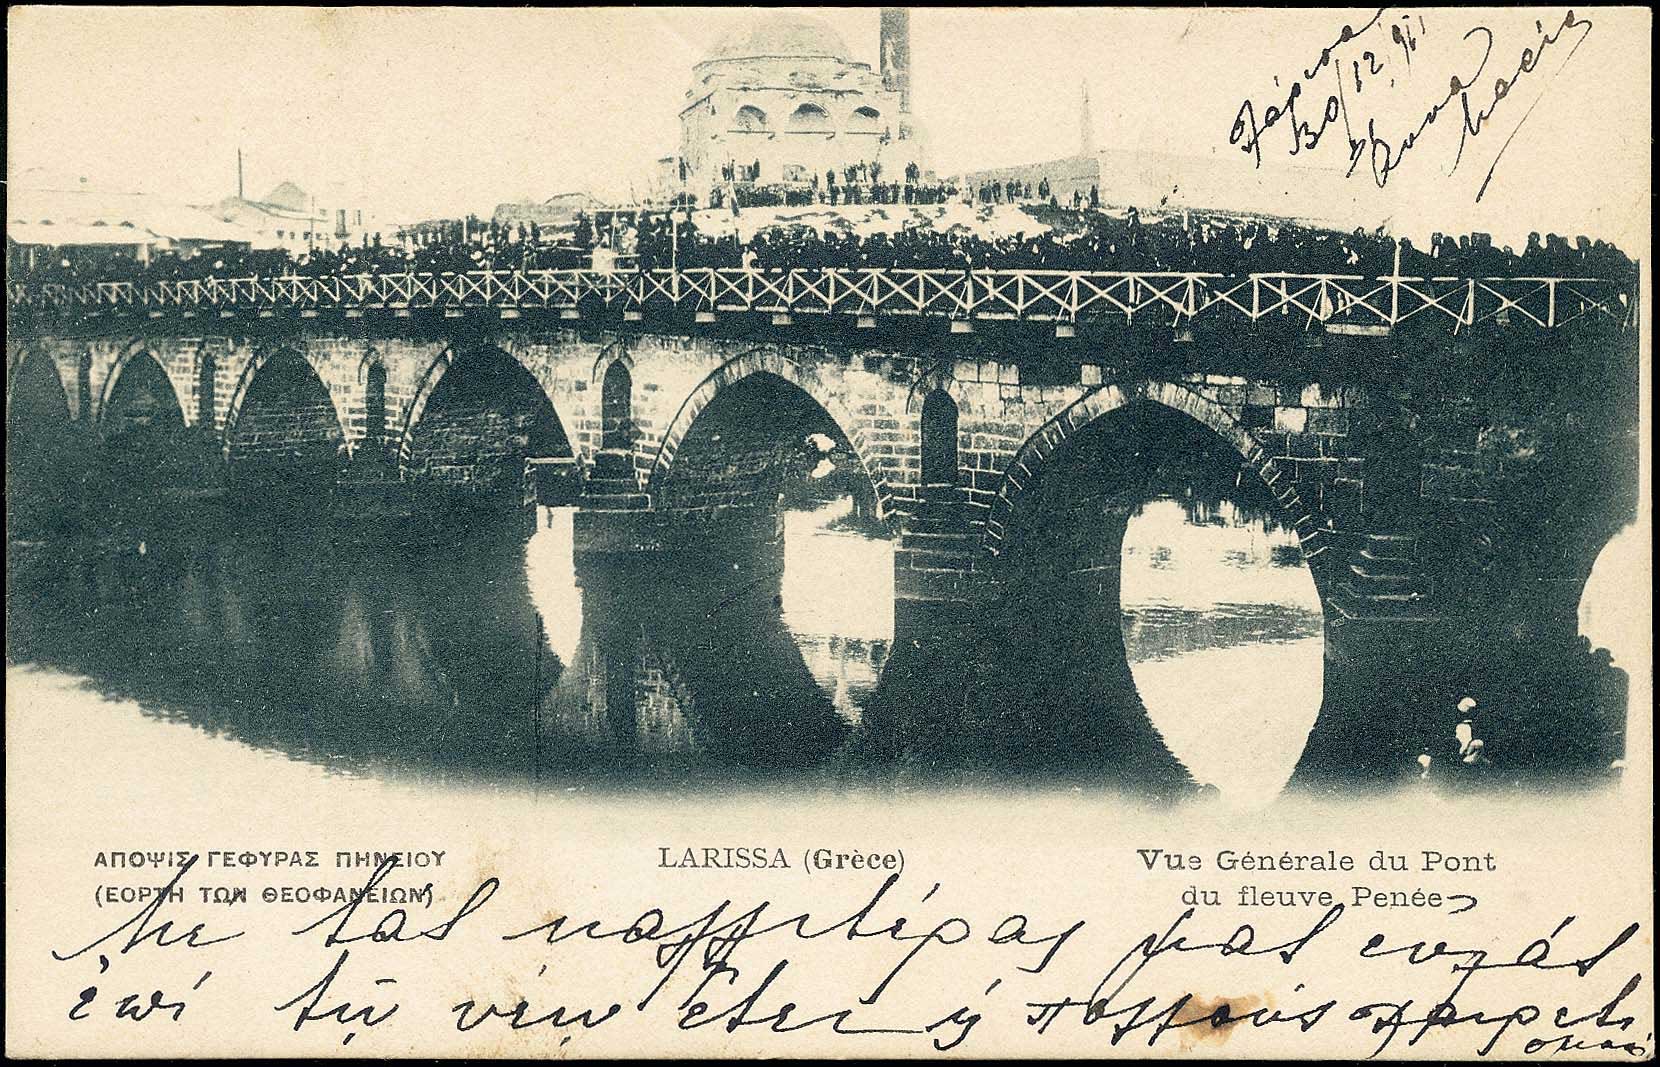 Λάρισσα
30/12/
Άννα
ΑΠΟΨΙΣ ΓΕΦΥΡΑΣ ΠΗΝΕΙΟΥ
(ΕΟΡΤΗ ΤΩΝ ΘΕΟΦΑΝΕΙΩΝ)
LARISSA (Grèce)
Vue Générale du Pont
du fleuve Penée
Με τας καλλιτέρας μας ευχάς
ἐπί τῷ νέῳ ἔτει ἤ πολλούς χαιρετι
σμούς